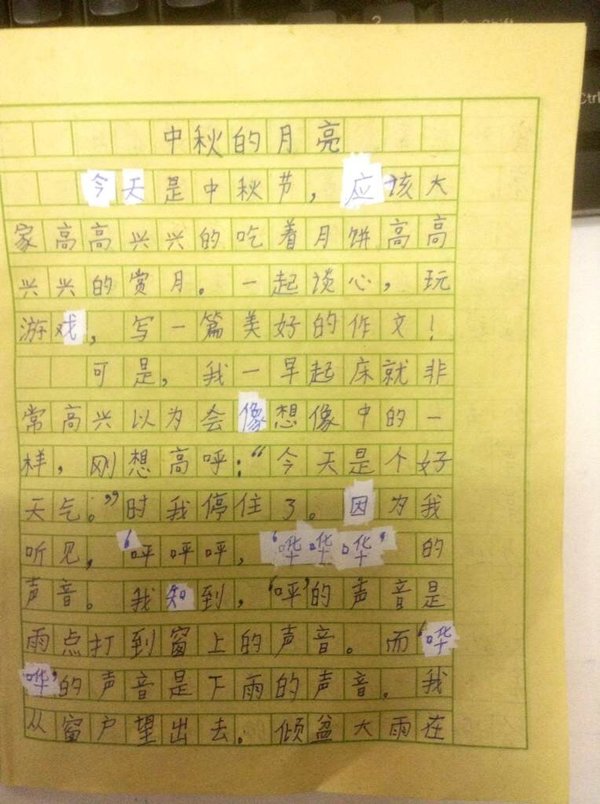 中秋的月亮
今天是中秋节，应该大
家高高兴兴的吃着月饼高高
兴兴的赏月。一起谈心，玩
游戏，写一篇美好的作文！
可是，我一早起床就非
常高兴以为会像想像中的一
样，刚想高呼：“今天是个好
天气。”时我停住了。因为我
听见，“呯呯呯，“哗哗哗”的
声音。我知到，“呯”的声音是
雨点打到窗上的声音。而“哗
哗”的声音是下雨的声音。我
从窗户望出去。倾盆大雨在